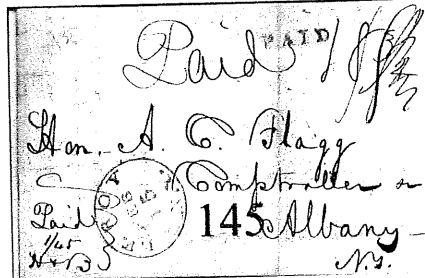 Paid PAID
Hon. A. C. Flagg
Comptroller
Paid 145 Albany
1/45 N.Y.